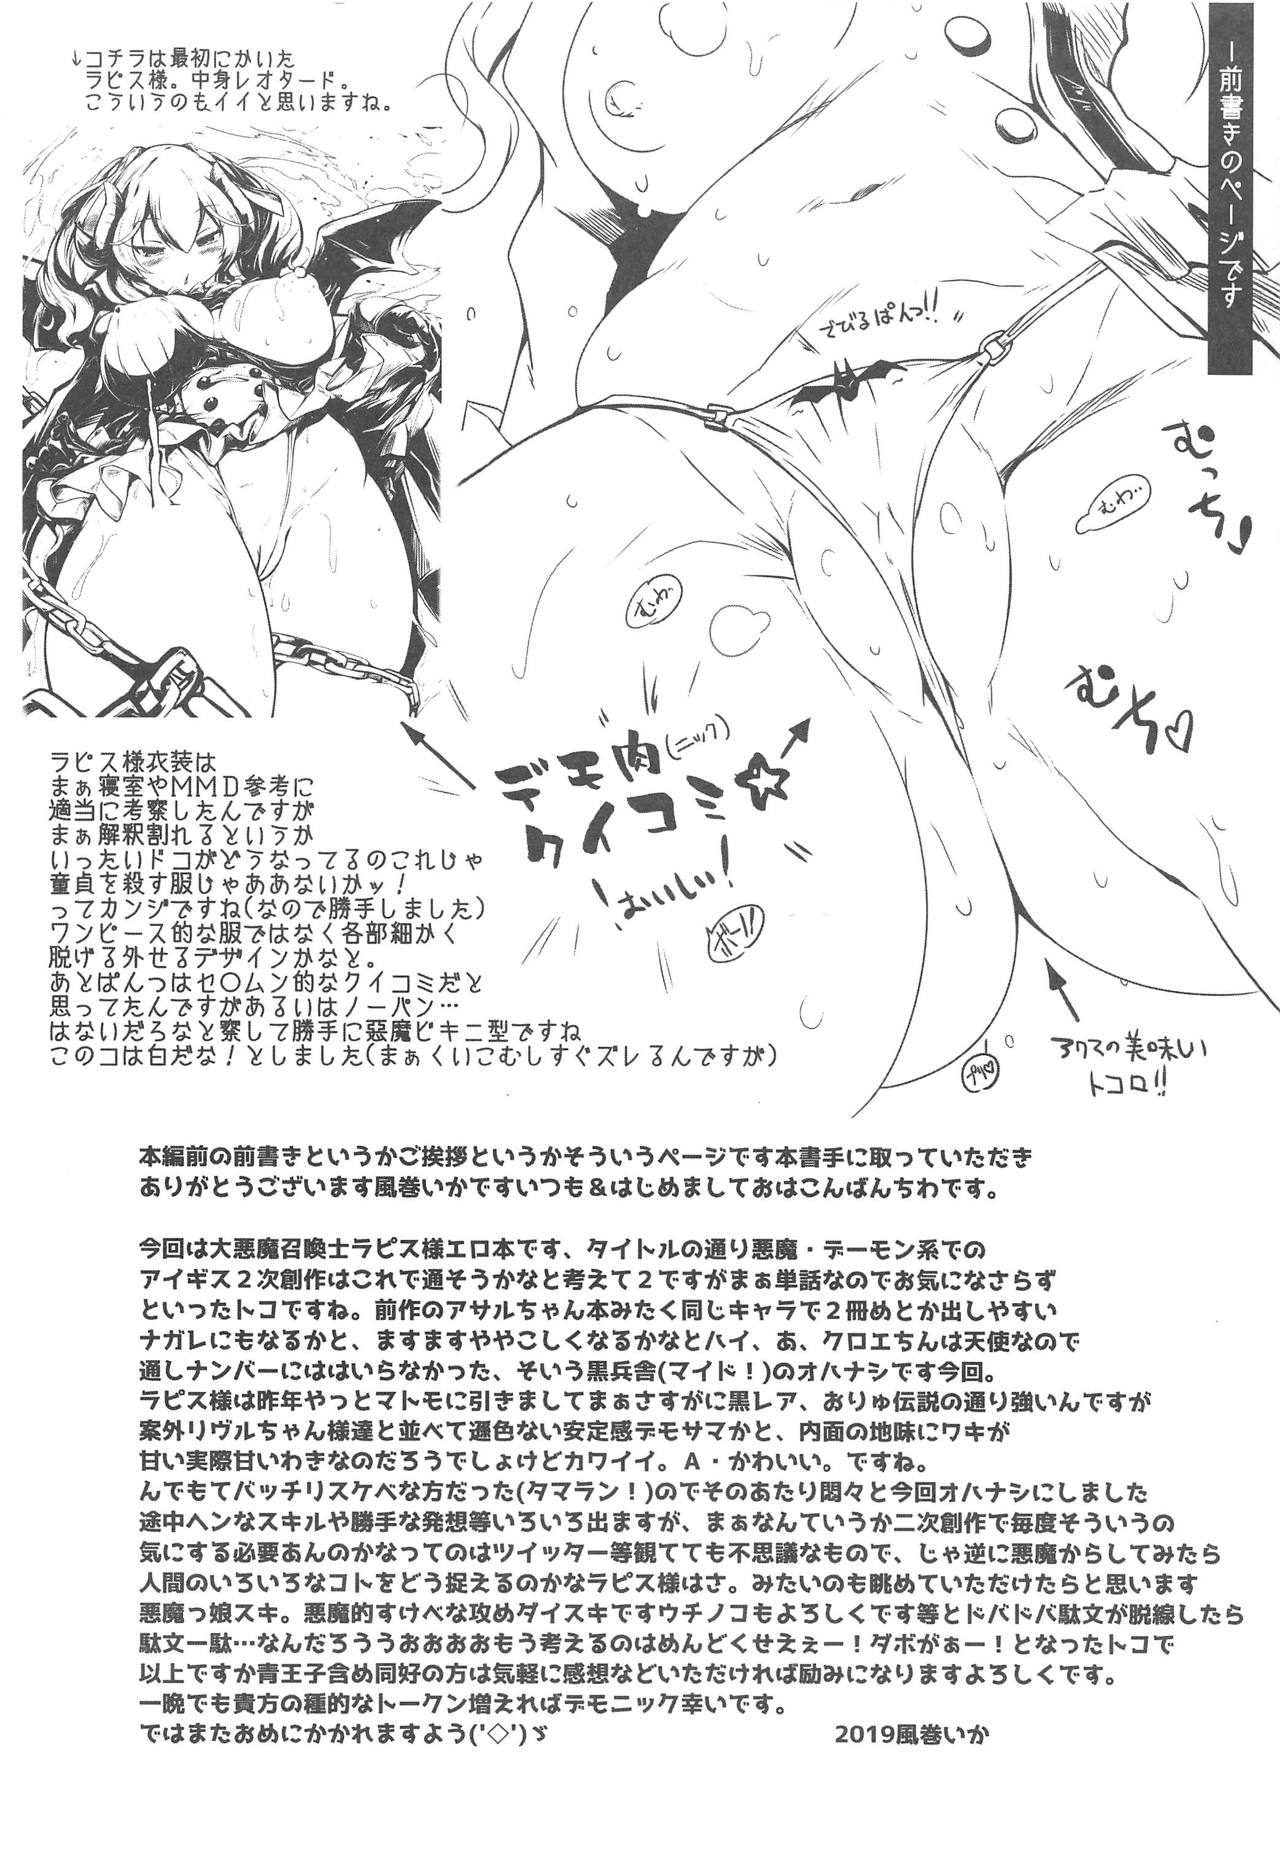 －前書きのページです
↓コチラは最初にかいた
ラピス様。中身レオタード。
こういうのもイイと思いますね。
でびるぱんつ!!
むっち♪
むわ…
むわ…
むち♡
デモ肉(ニック)
クイコミ☆
はいしい!
アクスの美味い
トコロ!!
ラピス様衣装は
まぁ寝室やMMD参考に
適当に考察したんですが
まぁ解釈割れるというか
いったいドコがどうなってるのこれじゃ
童貞を殺す服じゃああないかッ！
ってカンジですね(なので勝手しました)
ワンピース的な服ではなく各部細かく
脱げる外せるデザインかなと。
あとぱんつはセ〇ムン的なクイコミだと
思ってたんですがあるいはノーパン…
はないだろなと察して勝手に惡魔ビキニ型ですね
このコは白だな！としました(まぁくいこむしすぐズレるんですが)
本編前の前書きというかご挨拶というかそういうページです本書手に取っていただき
ありがとうございます風巻いかですいつも＆はじめましておはこんばんちわです。
今回は大悪魔召喚士ラピス様エロ本です、タイトルの通り悪魔・デーモン系での
アイギス２次創作はこれで通そうかなと考えて２ですがまぁ単話なのでお気になさらず
といったトコですね。前作のアサルちゃん本みたく同じキャラで２冊めとか出しやすい
ナガレにもなるかと、ますますややこしくなるかなとハイ、あ、クロエちんは天使なので
通しナンバーにははいらなかった、そいう黒兵舎(マイド！)のオハナシです今回。
ラピス様は昨年やっとマトモに引きましてまぁさすがに黒レア、おりゅ伝説の通り強いんですが
案外リヴルちゃん様達と並べて遜色ない安定感デモサマかと、内面の地味にワキが
甘い実際甘いわきなのだろうでしょけどカワイイ。Ａ・かわいい。ですね。
んでもてバッチリスケベな方だった(タマラン！)のでそのあたり悶々と今回オハナシにしました
途中ヘンなスキルや勝手な発想等いろいろ出ますが、まぁなんていうか二次創作で毎度そういうの
気にする必要あんのかなってのはツイッター等観てても不思議なもので、じゃ逆に悪魔からしてみたら
人間のいろいろなコトをどう捉えるのかなラピス様はさ。みたいのも眺めていただけたらと思います
悪魔っ娘スキ。悪魔的すけべな攻めダイスキですウチノコもよろしくです等とドバドバ駄文が脱線したら
駄文一駄…なんだろううおおおおもう考えるのはめんどくせえぇー！ダボがぁー！となったトコで
以上ですか青王子含め同好の方は気軽に感想などいただければ励みになりますよろしくです。
一晩でも貴方の種的なトークン増えればデモニック幸いです。
ではまたおめにかかれますよう('◇')ゞ
2019風巻いか